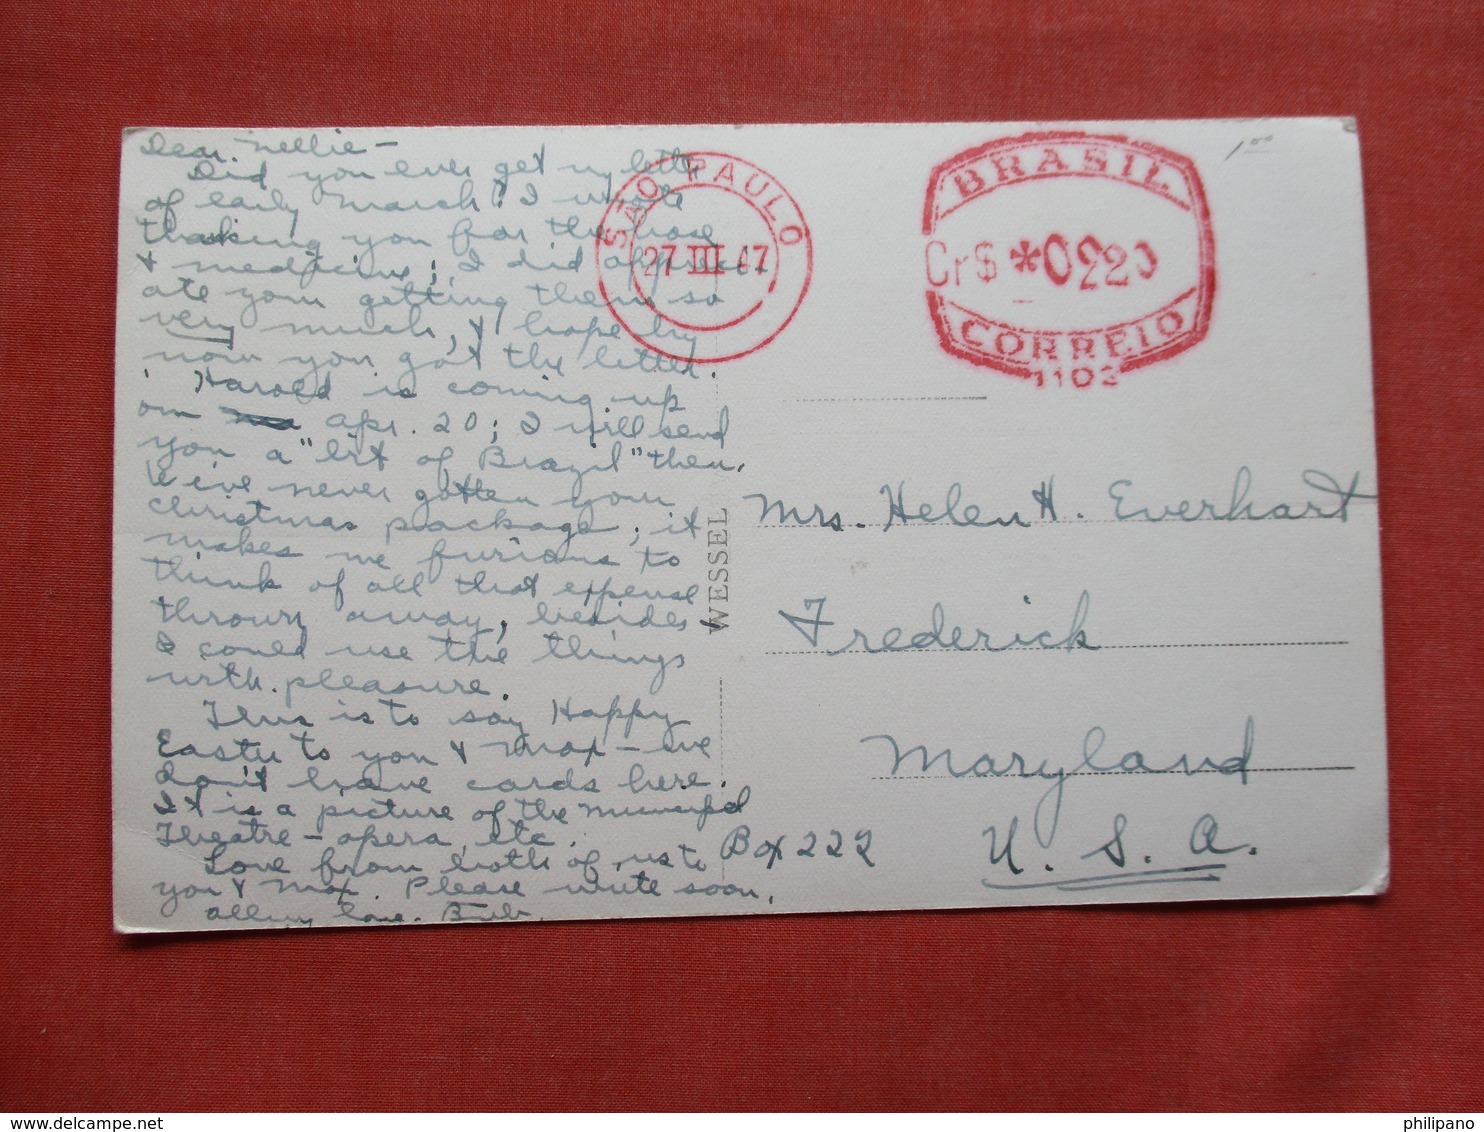 Dear Nellie—
Did you ever get my letter
of early March? I wrote
thanking you for the hose
& medicine; I did appreci-
ate your getting them so
very much, & I hope by
now you got the letter.
Harold is coming up
on Apr. 20; I will send
you a "bit of Brazil" then.
We've never gotten your
Christmas package; it
makes me furious to
think of all that expense
thrown away, besides
I could use the things
with pleasure.
This is to say Happy
Easter to you & Max — we
don't have cards here.
It is a picture of the Municipal
Theatre — opera, etc.
Love from both of us to
you & Max. Please write soon.
All my love. Bub.
SÃO PAULO
27 III 47
BRASIL
Cr$ *0220
CORREIO
1103
1.00
WESSEL
Mrs. Helen H. Everhart
Frederick
Maryland
Box 222
U. S. A.
philipano